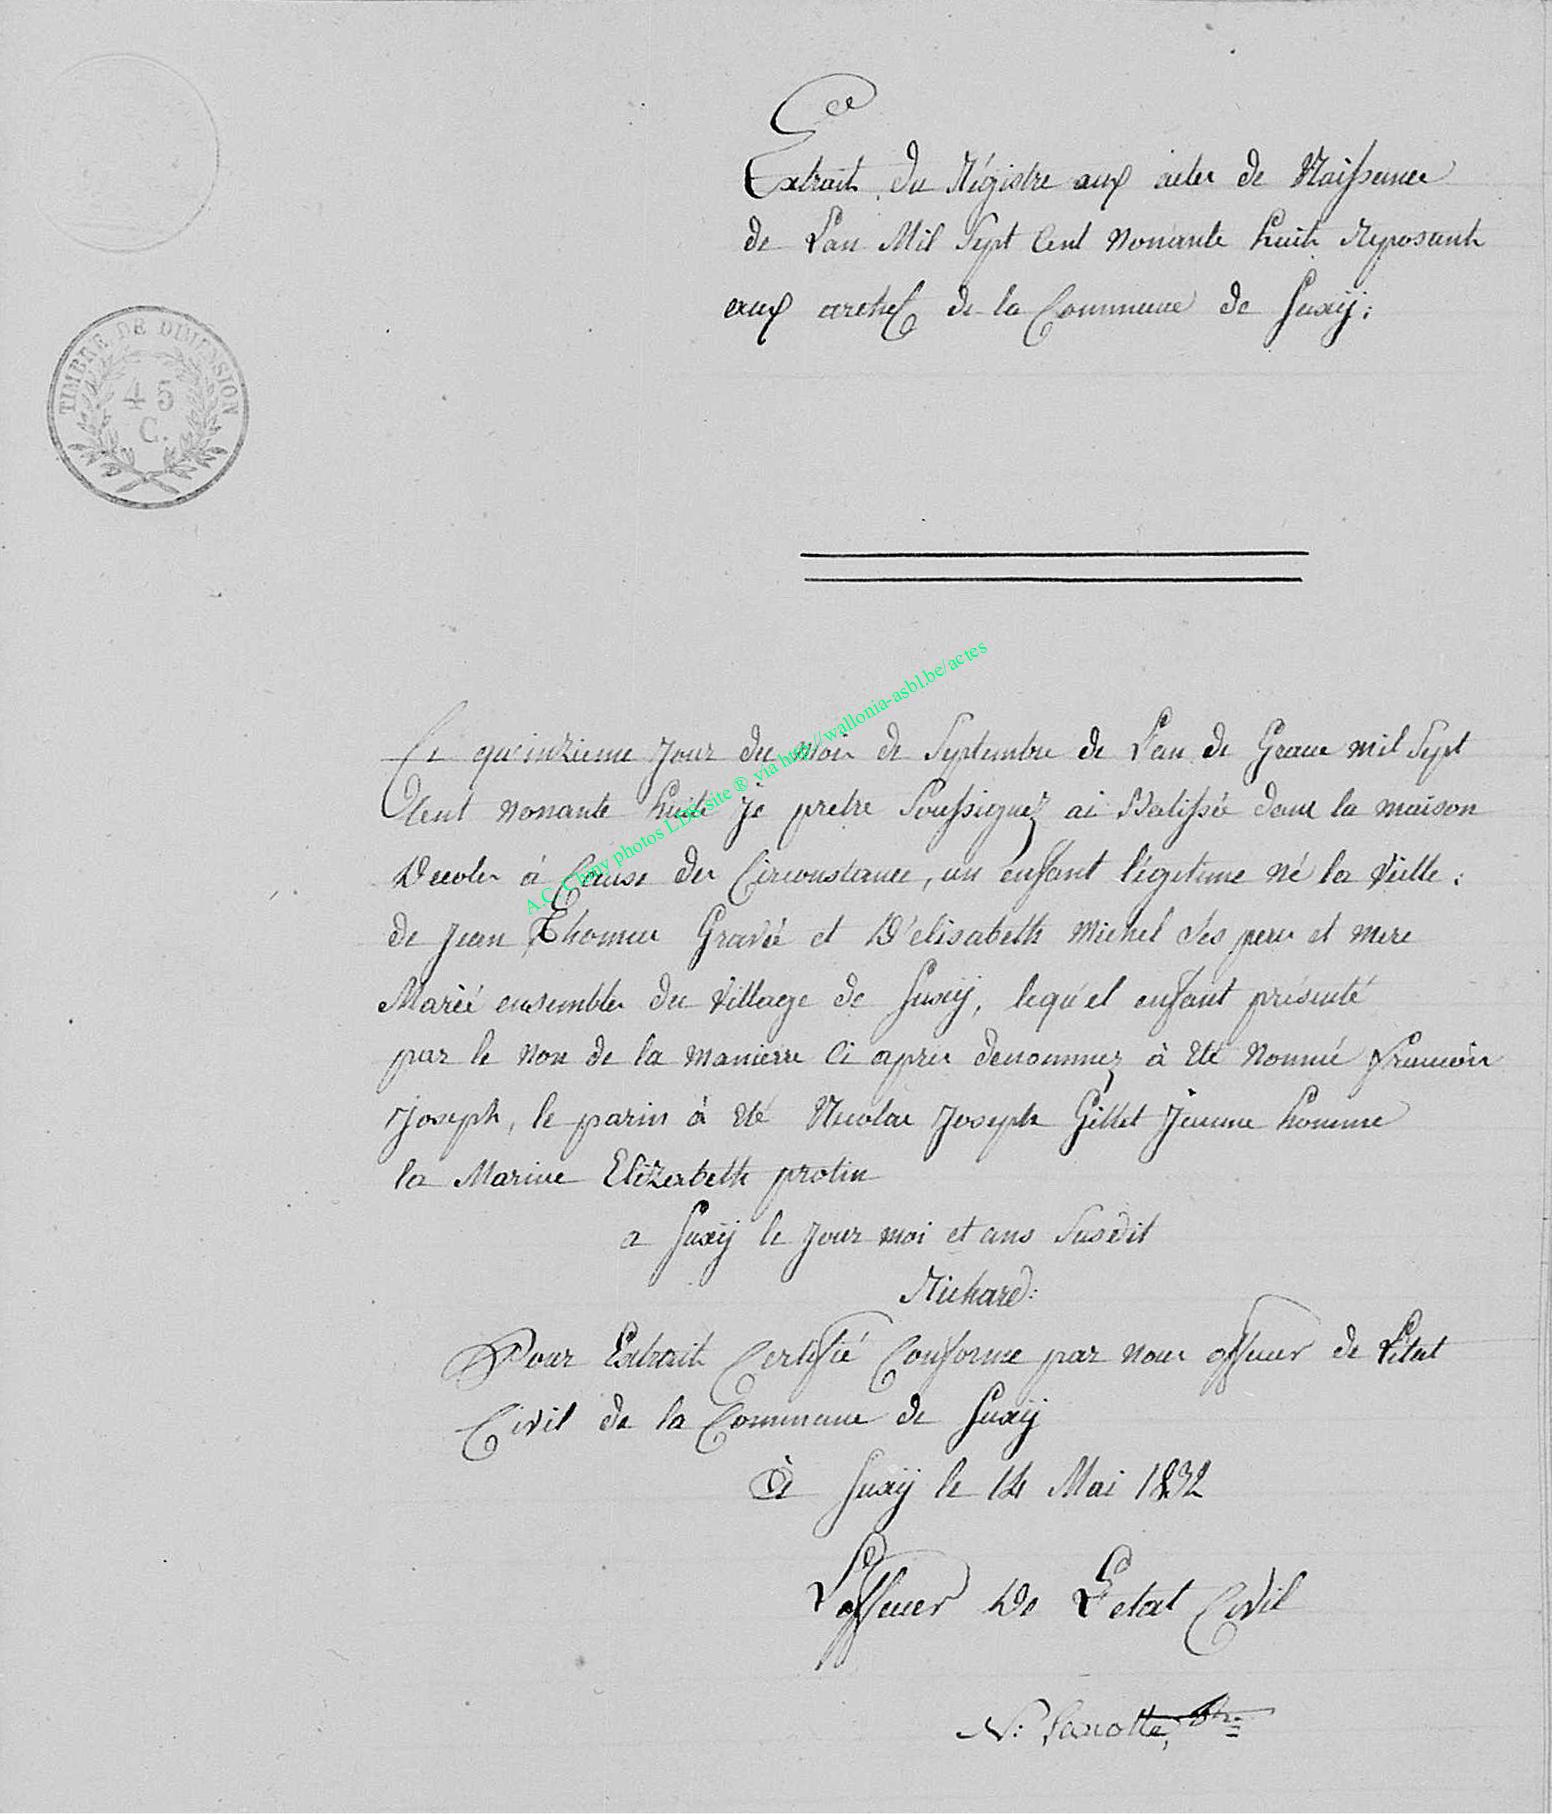 Extrait du Régistre aux actes de Naissance
de L'an Mil Sept Cent Nonante huit Reposant
aux arch de la Commune de Suxÿ:
TIMBRE DE DIMENSION
45
C.
Ce quinzieme Jour du mois de Septembre de L'an de Grace mil Sept
Cent Nonante huite Je pretre Soussignez ai Batissée dans la maison
D'ecoles á Cause des Circonstance, un enfant légitime Né la Veille:
de Jean Thomas Gravée et D'elisabeth Michel Ses pere et mere
Mariéé ensembles du Village de Suxÿ, lequ'el enfant présenté
par le Non de la manierre Ci apres denommez à Eté Nommé francois
Joseph, le parin à Eté Nicolas Joseph Gillet Jeune homme
la Marine Elizabeth protin
a Suxÿ le Jour moi et ans Susdit
Richard:
Pour Extrait Certifié Conforme par nous officier de L'etat
Civil de la Commune de Suxÿ
à Suxÿ le 14 Mai 1832
L'officier De L'etat Civil
N:
A.C. Chiny photos L.DB. site ® via http://wallonia-asbl.be/actes